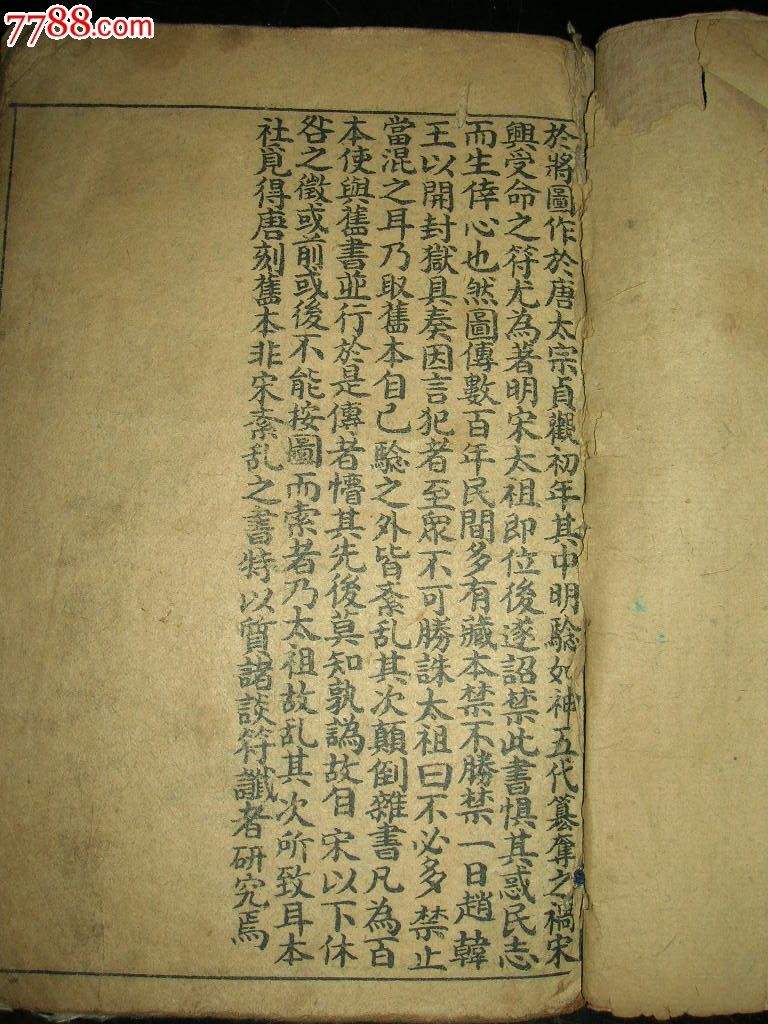 7788.com
於將圖作於唐太宗貞觀初年其中明騐如神五代簒奪之禍宋
興受命之符尤為著明宋太祖即位後遂詔禁此書惧其惑民志
而生倖心也然圖傳數百年民間多有藏本禁不勝禁一日趙韓
王以開封獄具奏因言犯者至衆不可勝誅太祖曰不必多禁止
當混之耳乃取舊本自己騐之外皆紊乱其次顛倒雜書凡為百
本使與舊書並行於是傳者懵其先後莫知孰譌故自宋以下休
咎之徵或前或後不能按圖而索者乃太祖故乱其次所致耳本
社覓得唐刻舊本非宋紊乱之書特以質諸談符讖者研究焉